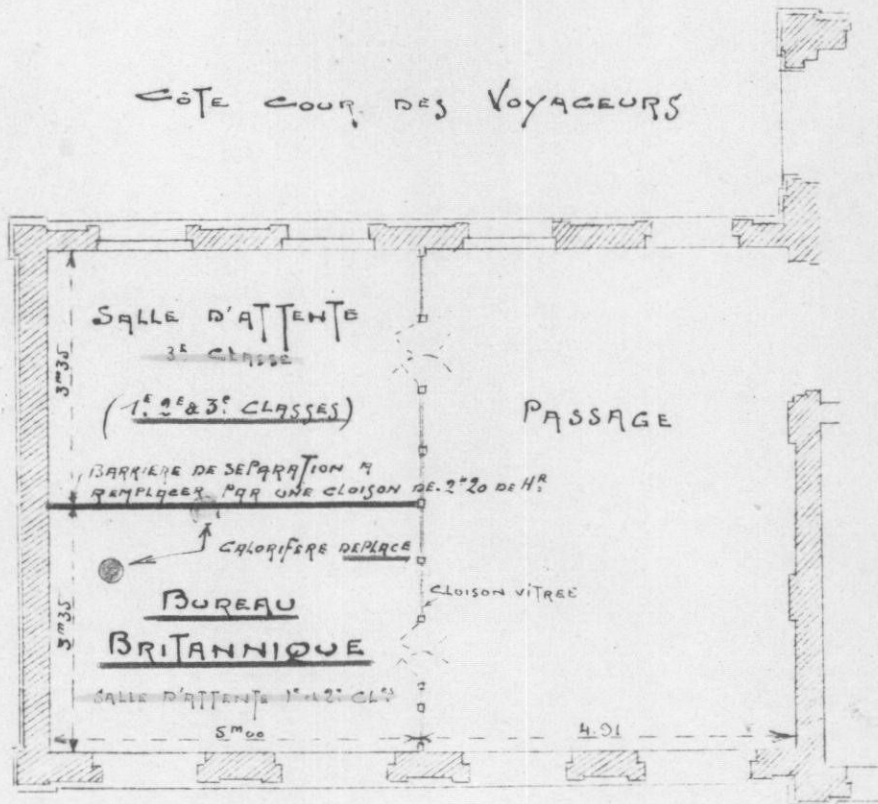 CÔTE COUR DES VOYAGEURS
SALLE D'ATTENTE
3E CLASSE
(1E 2E & 3E CLASSES)
3m35
PASSAGE
BARRIERE DE SEPARATION A
REMPLACER PAR UNE CLOISON DE 2m20 DE HR
CALORIFERE DEPLACE
CLOISON VITREE
BUREAU
BRITANNIQUE
3m35
SALLE D'ATTENTE 1E & 2E CLES
5m00
4.91